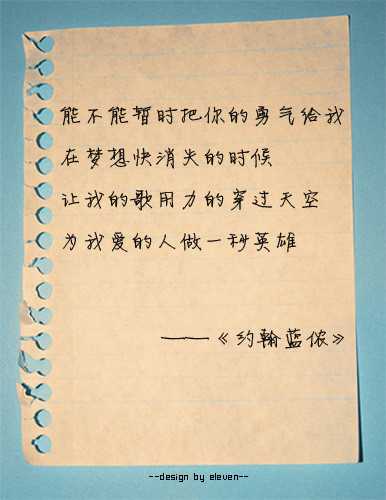 能不能暂时把你的勇气给我
在梦想快消失的时候
让我的歌用力的穿过天空
为我爱的人做一秒英雄
——《约翰蓝侬》
--design by eleven--